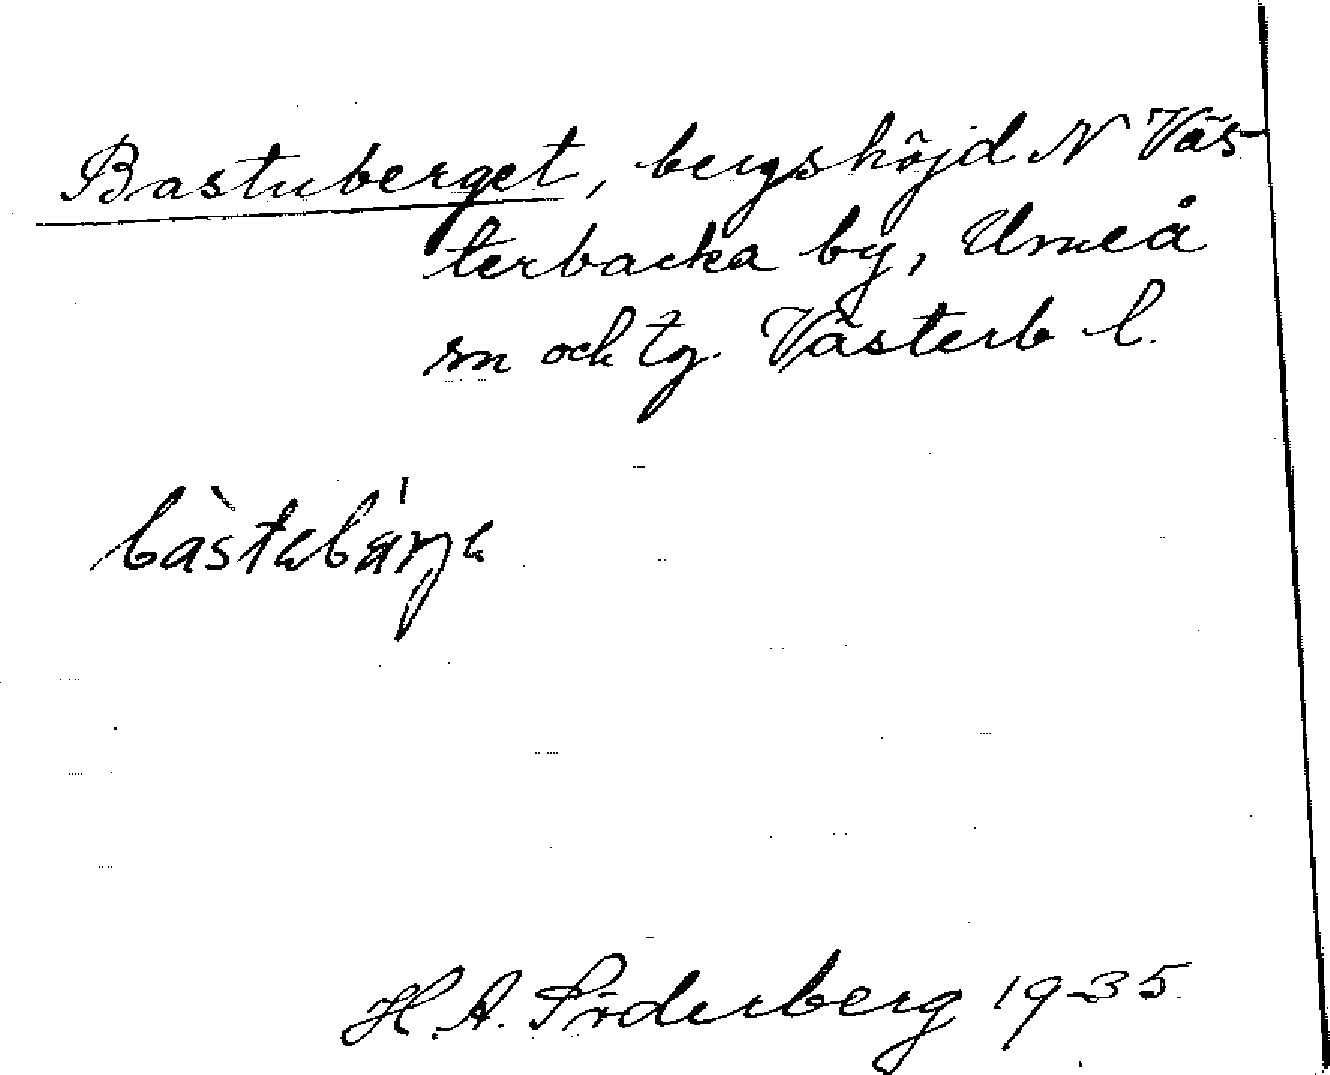 Bastuberget, bergshöjd N Väs-
terbacka by, Umeå
sn och tg. Västerb l.
bàstebárje
H. A. Söderberg 1935